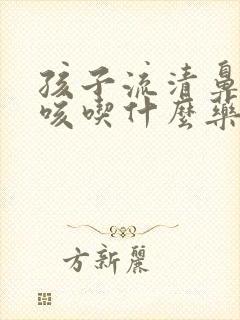 孩子流清鼻
咳喫什麼藥
方新麗